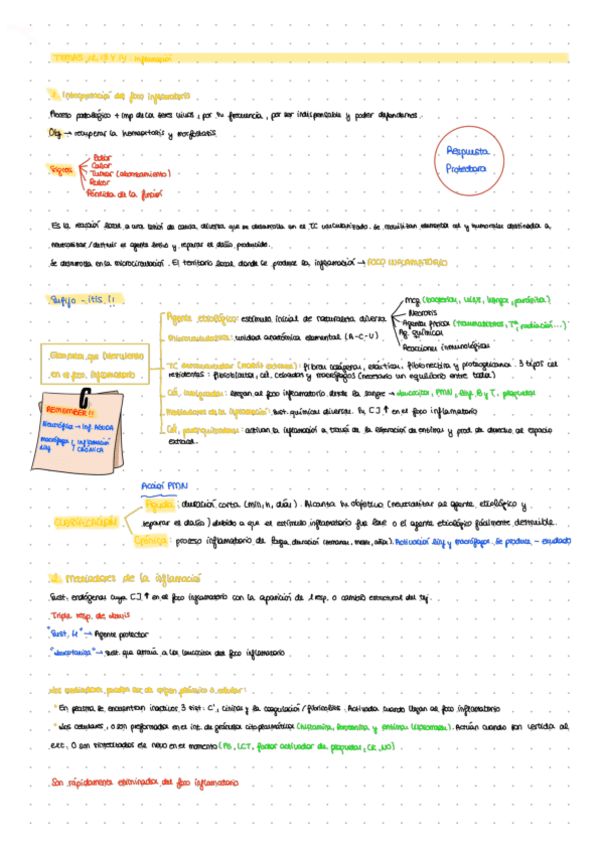 TEMAS 12, 13 Y 14: Inflamación
1. Interpretación del foco inflamatorio
Proceso patológico + imp de los seres vivos, por su frecuencia, por ser indispensable y poder defendernos.
Obj → recuperar la homeostasis y morfostasis.
Respuesta
Protectora
Signos
Calor
Tumor (abombamiento)
Rubor
Pérdida de la función
Es la reacción local a una lesión de causa diversa que se desarrolla en el TC vascularizado. Se movilizan elementos cel y humorales destinados a
neutralizar/destruir el agente lesivo y reparar el daño producido.
Se desarrolla en la microcirculación. El territorio local donde se produce la inflamación → FOCO INFLAMATORIO
Sufijo -itis !!
Elementos que intervienen
en el foco inflamatorio
Agente etiológico: estímulo inicial de naturaleza diversa
Mcg (bacterias, virus, hongos, parásitos)
Necrosis
Agentes físicos (traumatismos, Tª, radiación...)
Ag. químicos
Reacciones inmunológicas
Microcirculatorio: unidad anatómica elemental (A-C-V)
TC extravascular (matriz extracel): fibras colágenas, elásticas, fibronectina y proteoglicanos. 3 tipos cel
residentes: fibroblastos, cel. cebadas y macrófagos (necesario un equilibrio entre todos)
Cél. emigradas: llegan al foco inflamatorio desde la sangre → leucocitos, PMN, linf. B y T, plaquetas
Mediadores de la inflamación: sust. químicas diversas. Su C] ↑ en el foco inflamatorio
Cél. parenquimatosas: activan la inflamación a través de la liberación de enzimas y prod. de desecho al espacio
extracel.
REMEMBER!!
Neutrófilos → inf. AGUDA
macrófagos y
linf
inflamación
CRÓNICA
Acción PMN
CLASIFICACIÓN
Aguda: duración corta (min, h, días). Alcanza su objetivo (neutralizar al agente etiológico y
reparar el daño) debido a que el estímulo inflamatorio fue leve o el agente etiológico fácilmente destruible.
Crónica: proceso inflamatorio de larga duración (semanas, meses, años). Activación linf y macrófagos. Se produce - exudado
2. Mediadores de la inflamación
Sust. endógenas cuya C] ↑ en el foco inflamatorio con la aparición de 1 resp. o cambio estructural del tej.
Triple resp. de Lewis
"Sust. H" → Agente protector
"leucotaxina" → sust. que atraía a los leucocitos del foco inflamatorio
Los mediadores pueden ser de origen plasmático o celular:
* En plasma se encuentran inactivos. 3 sist: C', cininas y la coagulación/fibrinólisis. Activados cuando llegan al foco inflamatorio
* Los celulares, o son preformados en el int. de gránulos citoplasmáticos (histamina, serotonina y enzimas lisosomales). Actúan cuando son vertidos al
e.e.c. O son sintetizados de novo en el momento (PG, LCT, factor activador de plaquetas, CK, NO)
Son rápidamente eliminados del foco inflamatorio